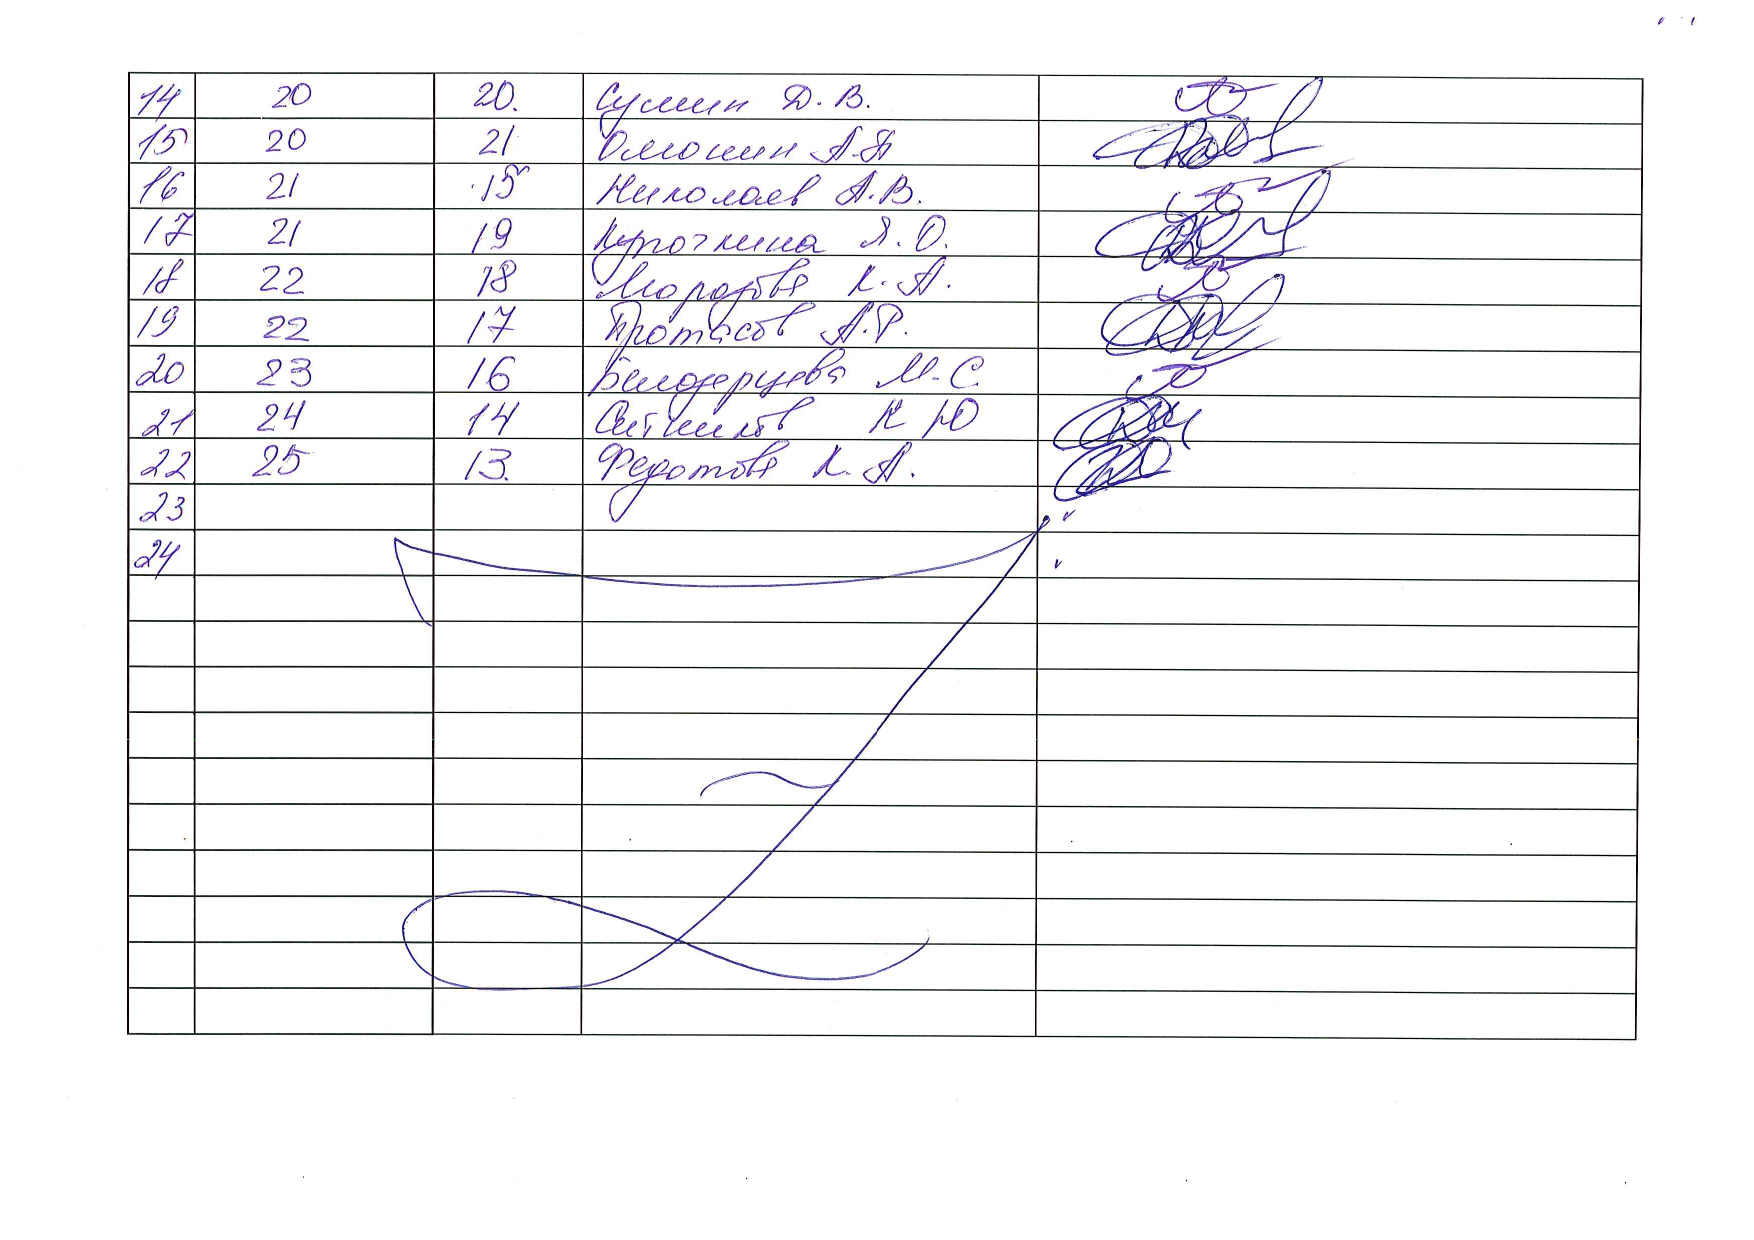 14 20 20. Сумин Д. В.
15 20 21 Омошин А.А
16 21 15 Николаев А.В.
17 21 19 Курочкина Я. О.
18 22 18 Морозова К. А.
19 22 17 Протасов А.Р.
20 23 16 Белозерцева М. С.
21 24 14 Ситников К Ю
22 25 13. Федотова К. А.
23
24